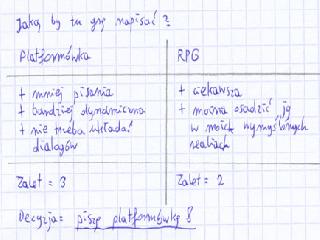 Jaką by tu grę napisać?
Platformówka
RPG
+ mniej pisania
+ bardziej dynamiczna
+ nie trzeba wkładać
dialogów
+ ciekawsza
+ można osadzić ją
w moich wymyślonych
realiach
Zalet = 3
Zalet = 2
Decyzja: piszę platformówkę!